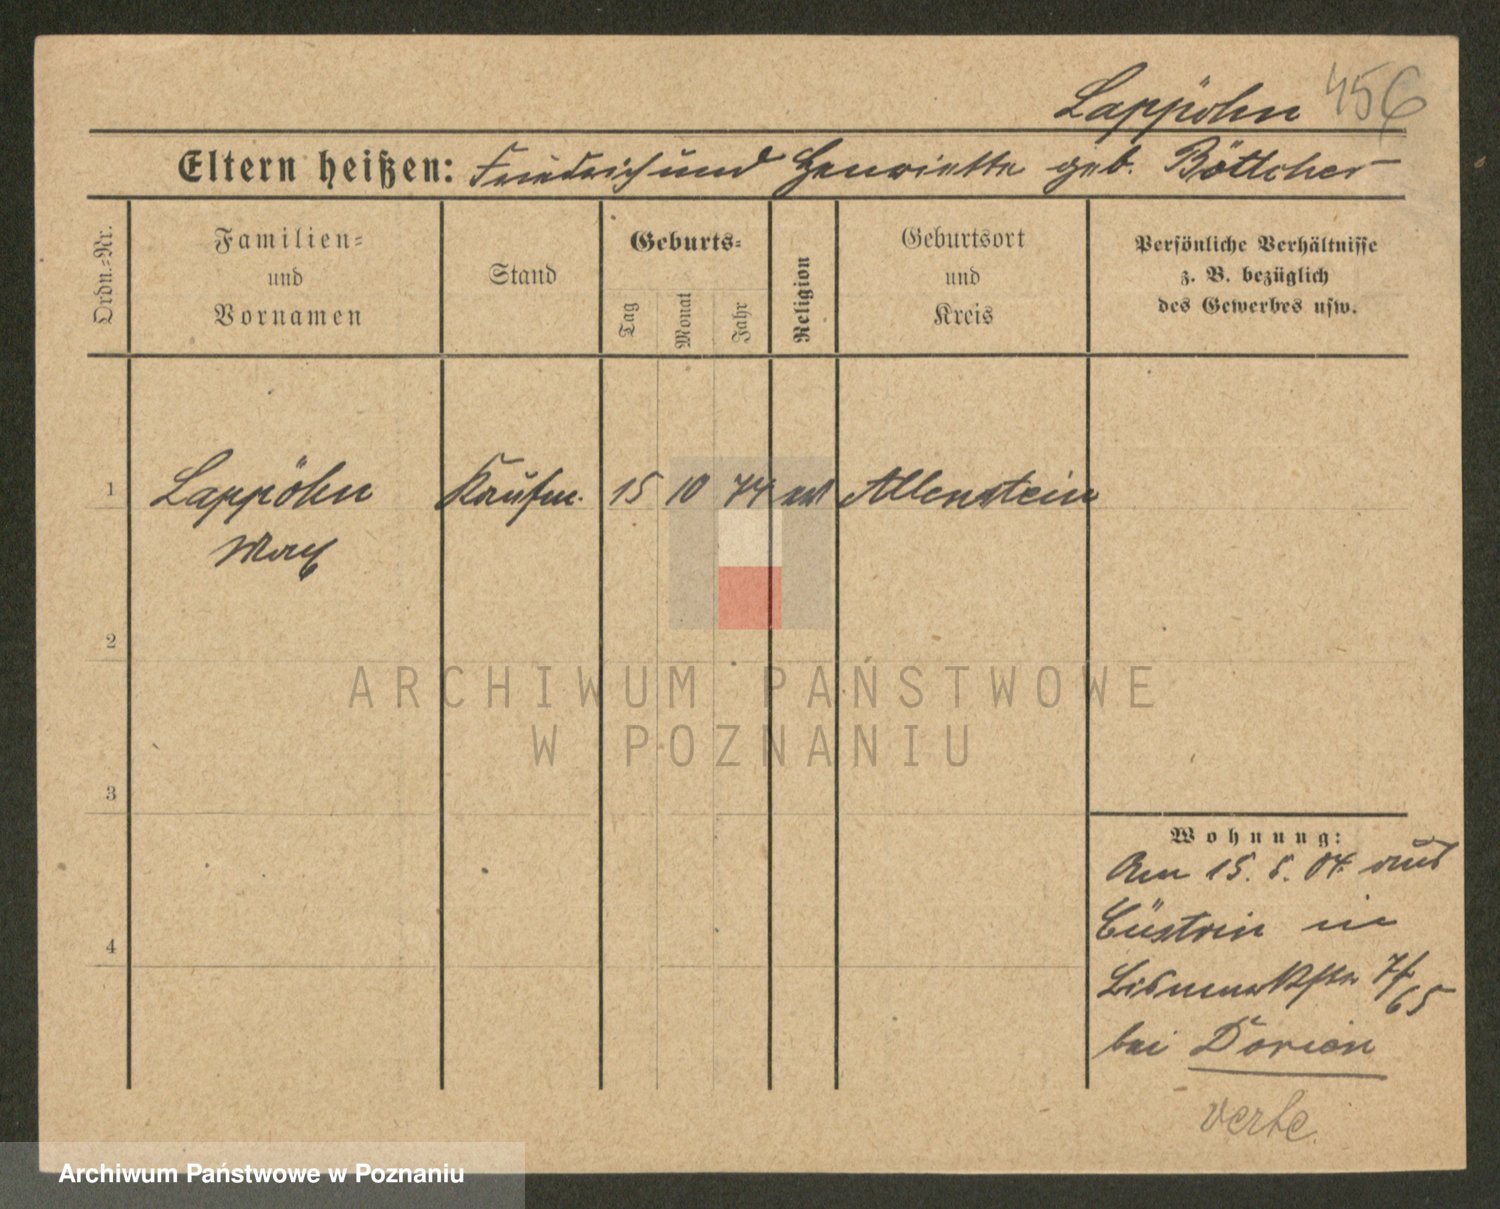 Lappöhn 456
Eltern heißen: Friedrich und Henriette geb. Böttcher
Ordn.-Nr.
Familien- und Vornamen
Stand
Geburts-
Tag
Monat
Jahr
Religion
Geburtsort und Kreis
Persönliche Verhältnisse
z. B. bezüglich
des Gewerbes usw.
1 Lappöhn Kaufm. 15 10 74 Allenstein
Max
2
ARCHIWUM PAŃSTWOWE
W POZNANIU
3
Wohnung:
Am 15. 5. 04. aus
Cüstrin in
4
bei Dorien
Archiwum Państwowe w Poznaniu